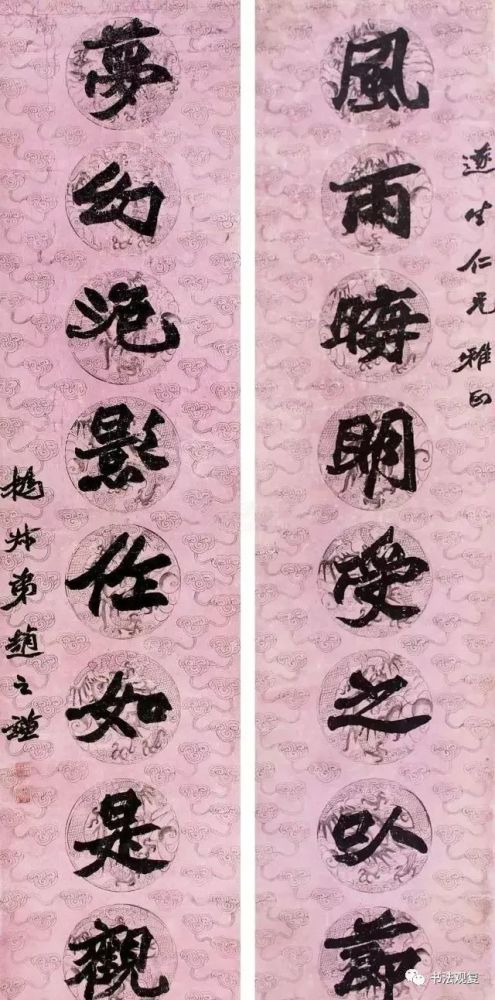 遂生仁兄雅正
風雨晦明受之以節
夢幻泡影作如是觀
撝叔弟趙之謙
书法观复